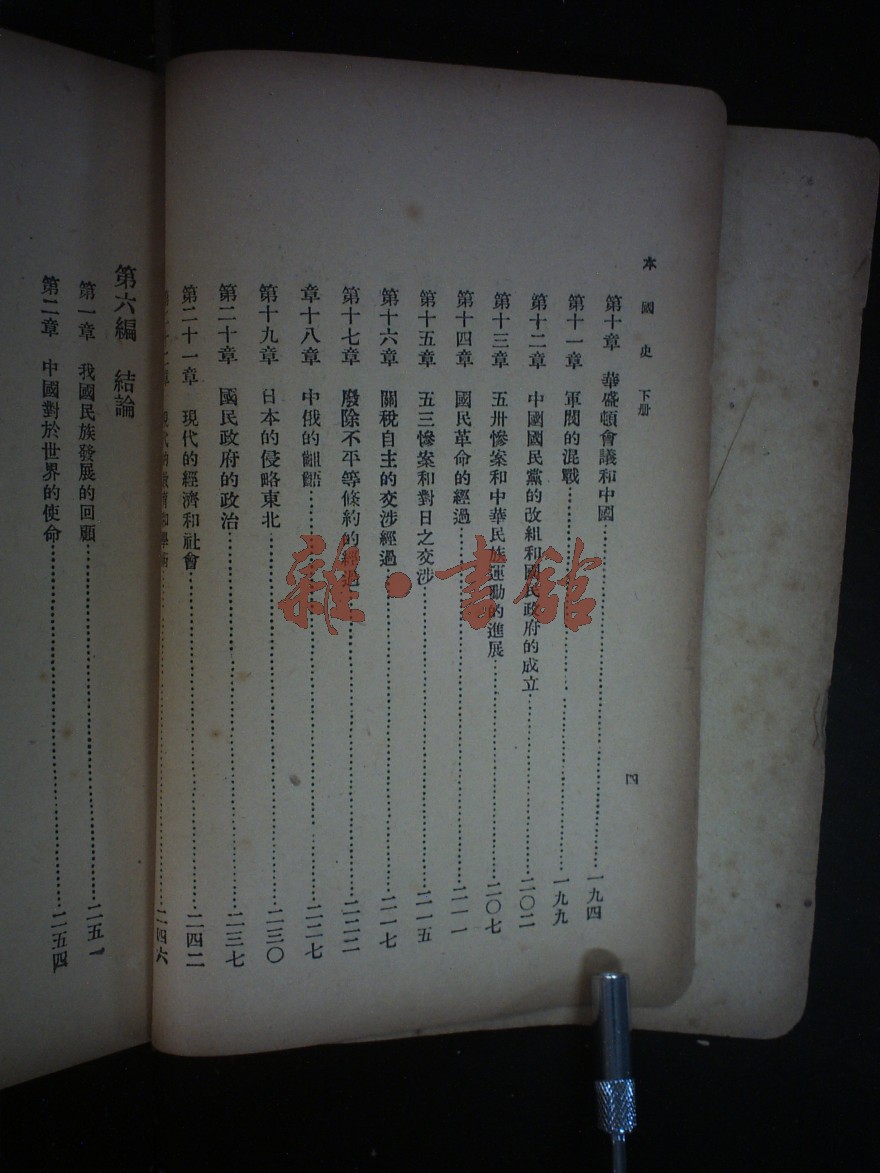 本國史 下册
四
第十章 華盛頓會議和中國 一九四
第十一章 軍閥的混戰 一九九
第十二章 中國國民黨的改組和國民政府的成立 二〇二
第十三章 五卅慘案和中華民族運動的進展 二〇七
第十四章 國民革命的經過 二一一
第十五章 五三慘案和對日之交涉 二一五
第十六章 關稅自主的交涉經過 二一七
第十七章 廢除不平等條約的經過 二二二
章十八章 中俄的齟齬 二二七
第十九章 日本的侵略東北 二三〇
第二十章 國民政府的政治 二三七
第二十一章 現代的經濟和社會 二四二
二四六
第六編 結論
第一章 我國民族發展的回顧 二五一
第二章 中國對於世界的使命 二五四
雜·書館